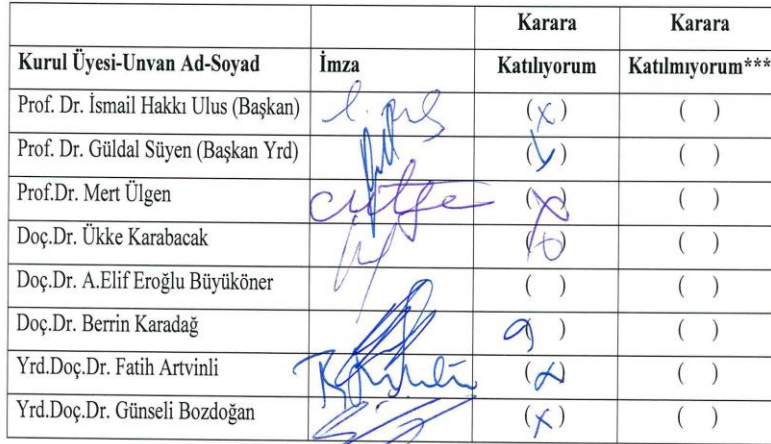 Karara Karara
Kurul Üyesi-Unvan Ad-Soyad İmza Katılıyorum Katılmıyorum***
Prof. Dr. İsmail Hakkı Ulus (Başkan) (x) ( )
Prof. Dr. Güldal Süyen (Başkan Yrd) (x) ( )
Prof.Dr. Mert Ülgen (x) ( )
Doç.Dr. Ükke Karabacak (x) ( )
Doç.Dr. A.Elif Eroğlu Büyüköner ( ) ( )
Doç.Dr. Berrin Karadağ ( ) ( )
Yrd.Doç.Dr. Fatih Artvinli (x) ( )
Yrd.Doç.Dr. Günseli Bozdoğan (x) ( )